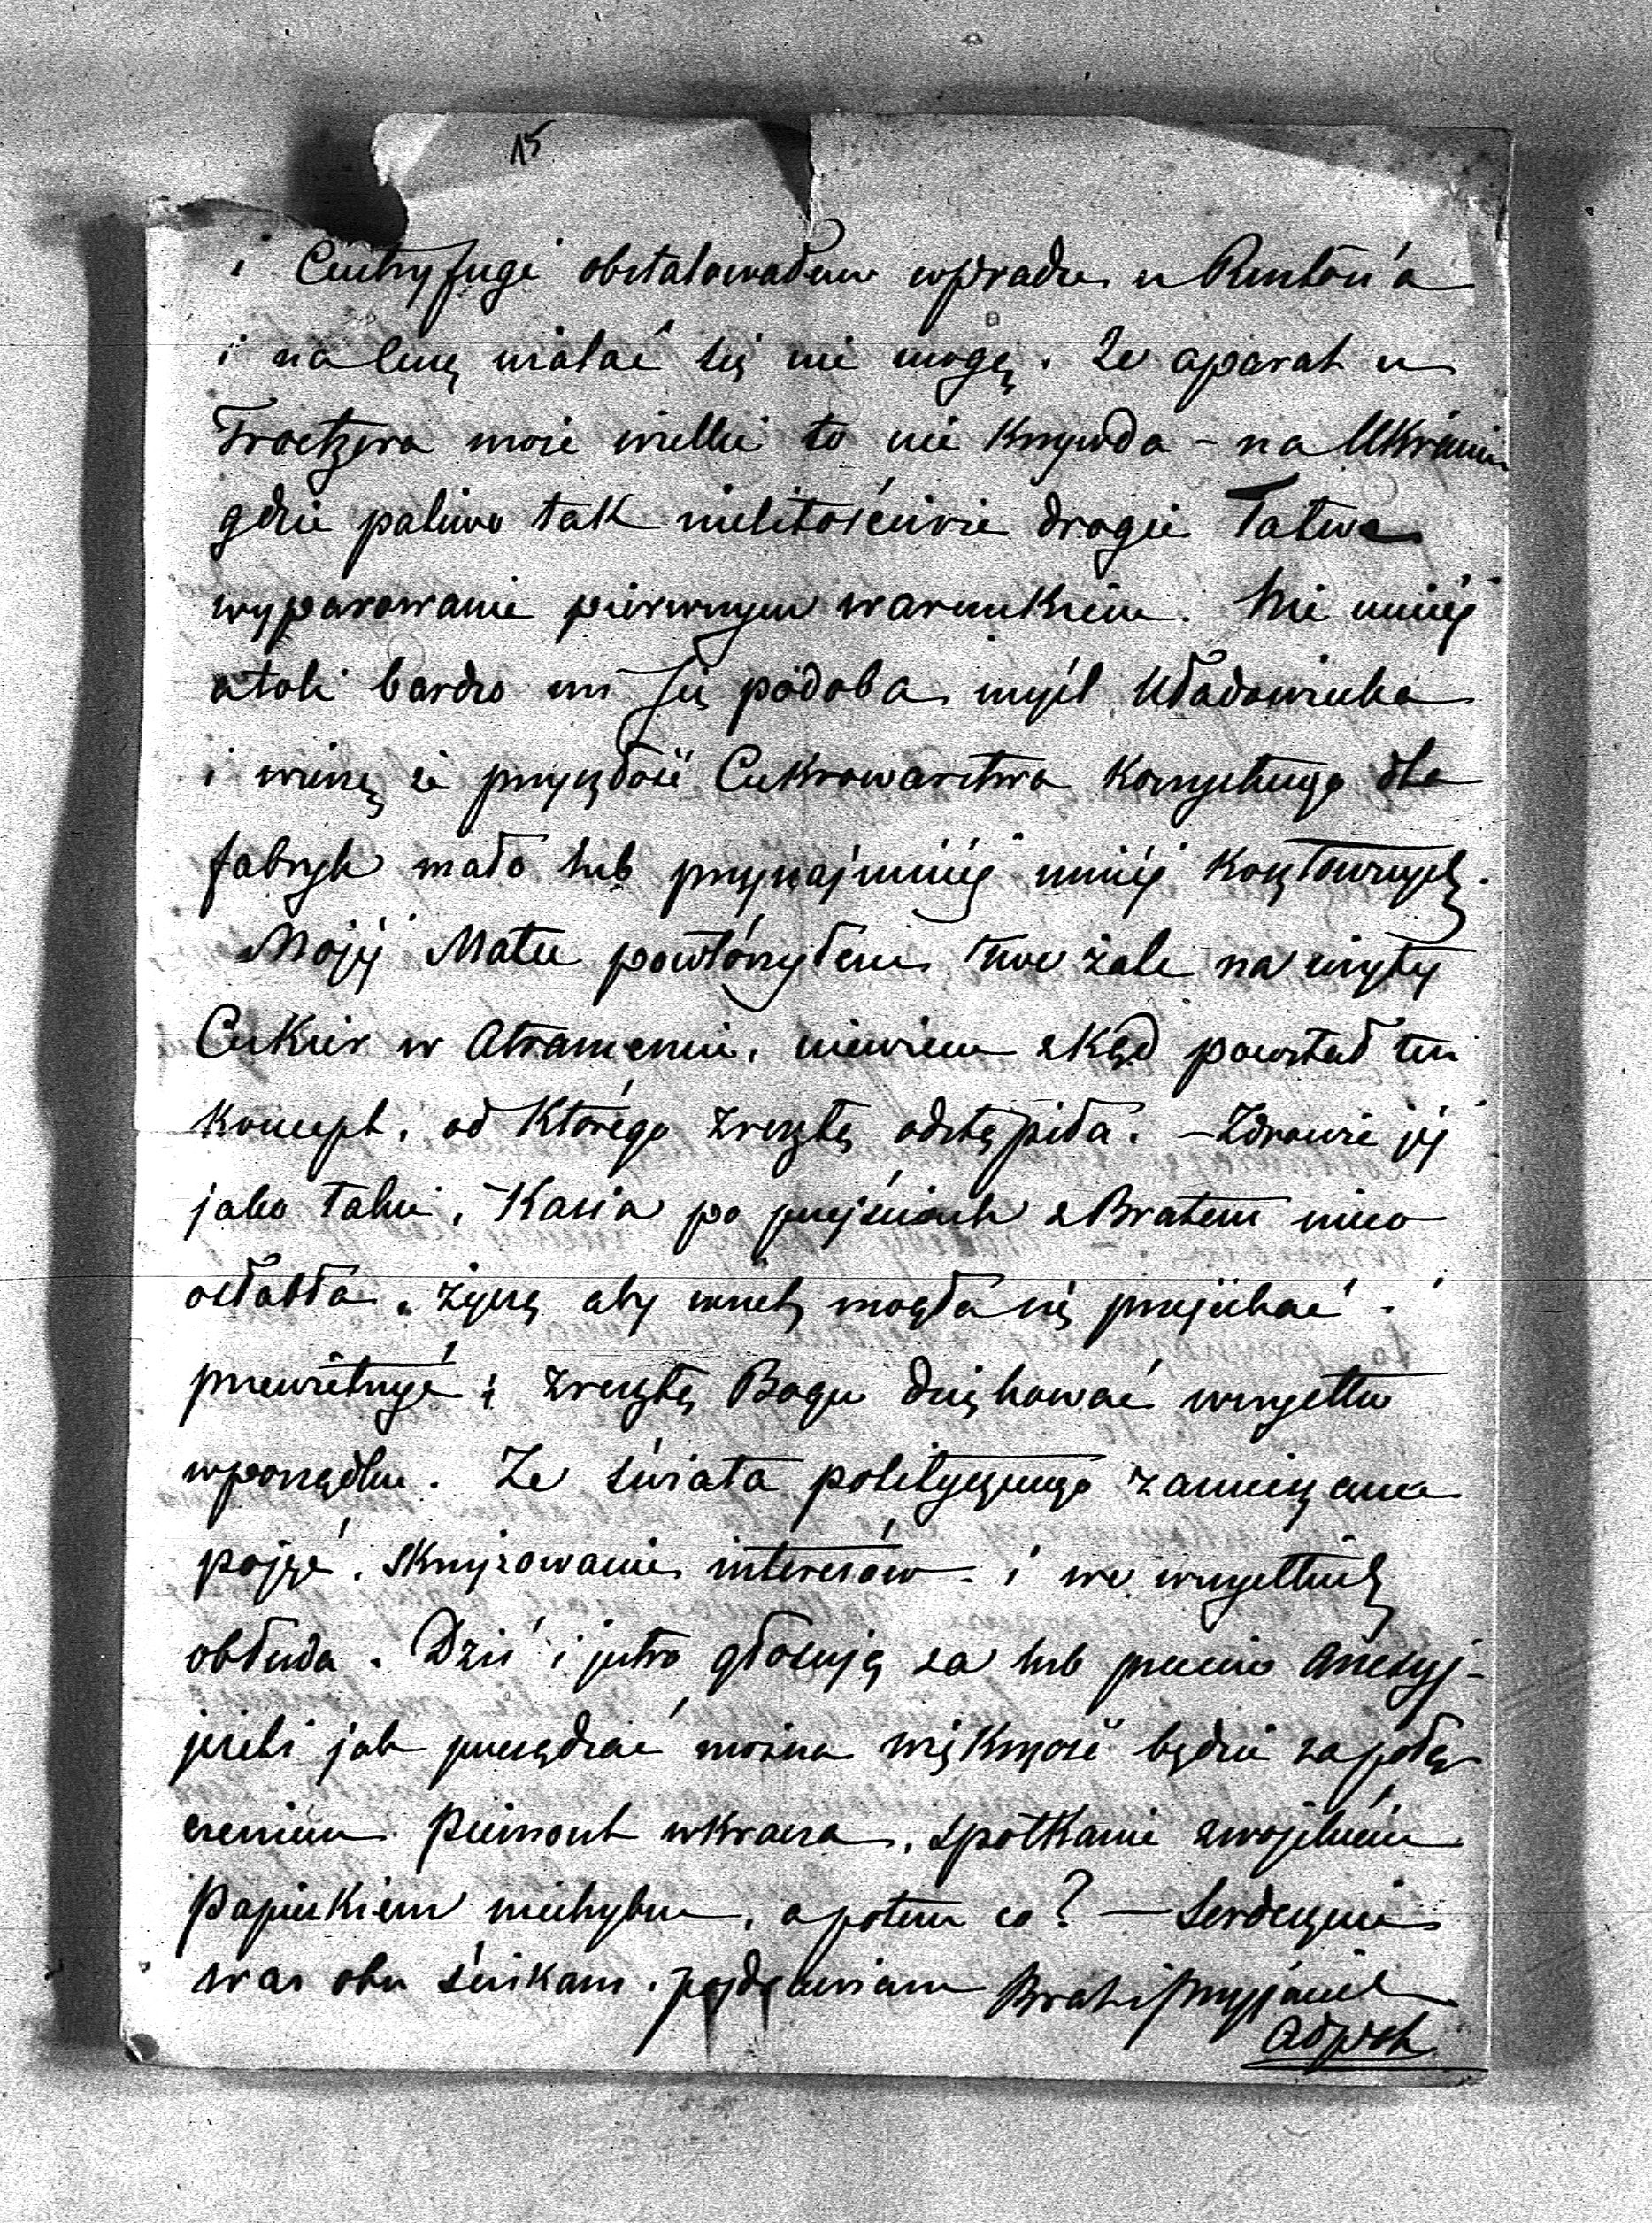 15
i Centryfugi obstalowałem wprzadzie u Renton'a
i na cenę żalać się nie mogę. Ze aparat u
Troetzera może wielki to nie krzywda – na Ukrainie
gdzie paliwo tak nielitościwie drogie łatwe
wyparowanie pierwszym warunkiem. Nie mniéj
atoli bardzo mi się podoba myśl Uładowiecka
i wierzę że przyszłość Cukrowarstwa korzystnego dla
fabryk mało lub przynajmniéj mniéj kosztownych.
Mojéj Matce powtórzyłem twe żale na
Cukier w Atramencie, niewiem zkąd powstał ten
koncept, od którego zresztą odstąpiła. – Zdrowie jéj
jako takie, Kasia po przejściach z Bratem nieco
osłabła, życzę aby wnet mogła się przejechać i
przewietrzyć; zresztą Bogu dziękować wszystko
wporządku. Ze świata politycznego zamieszanie
pojęć, skrzyżowanie interesów – i we wszystkich
obłuda. Dziś i jutro głosują za lub przeciw Aneksyj –
jeżeli jak przesądzać można większość będzie za połą
czeniem Piemont wkracza, spotkanie zwojskiem
Papieskiem niechybne, a potem co? — Serdecznie
was obu ściskam, pozdrawiam Brat i Przyjaciel
Adolph